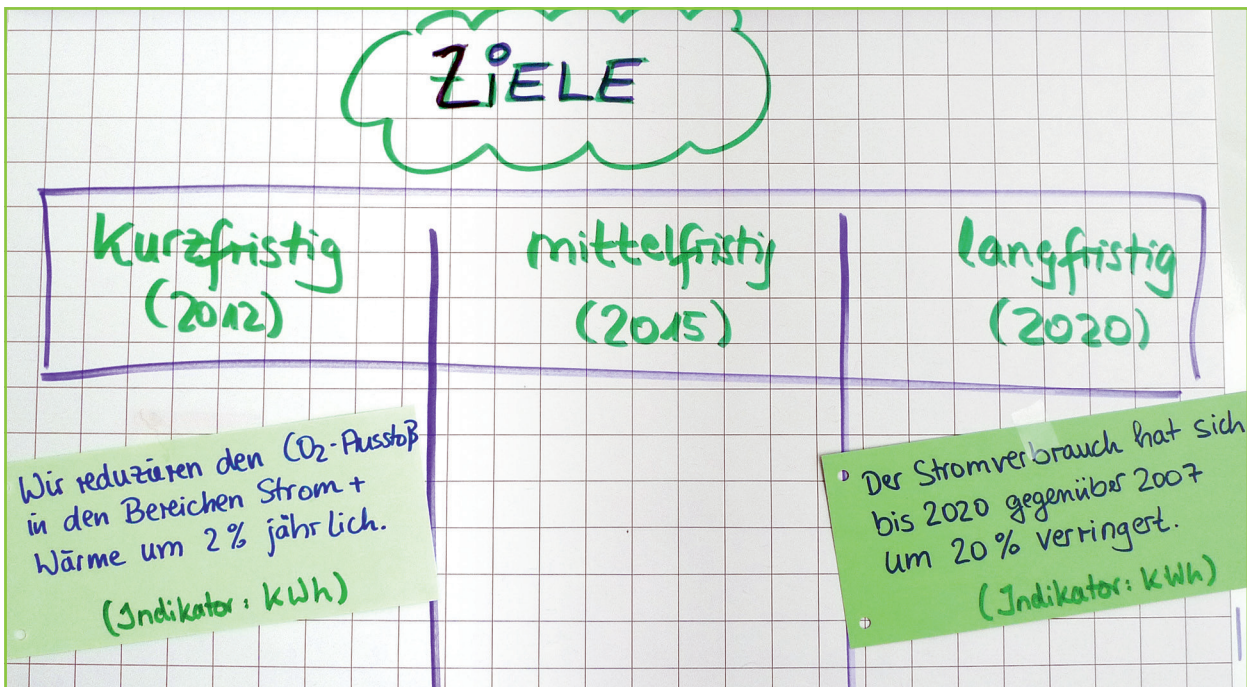 ZiELE
Kurzfristig
(2012)
mittelfristig
(2015)
langfristig
(2020)
Wir reduzieren den CO₂-Ausstoß
in den Bereichen Strom +
Wärme um 2% jährlich.
(Indikator: kWh)
Der Stromverbrauch hat sich
bis 2020 gegenüber 2007
um 20% verringert.
(Indikator: kWh)